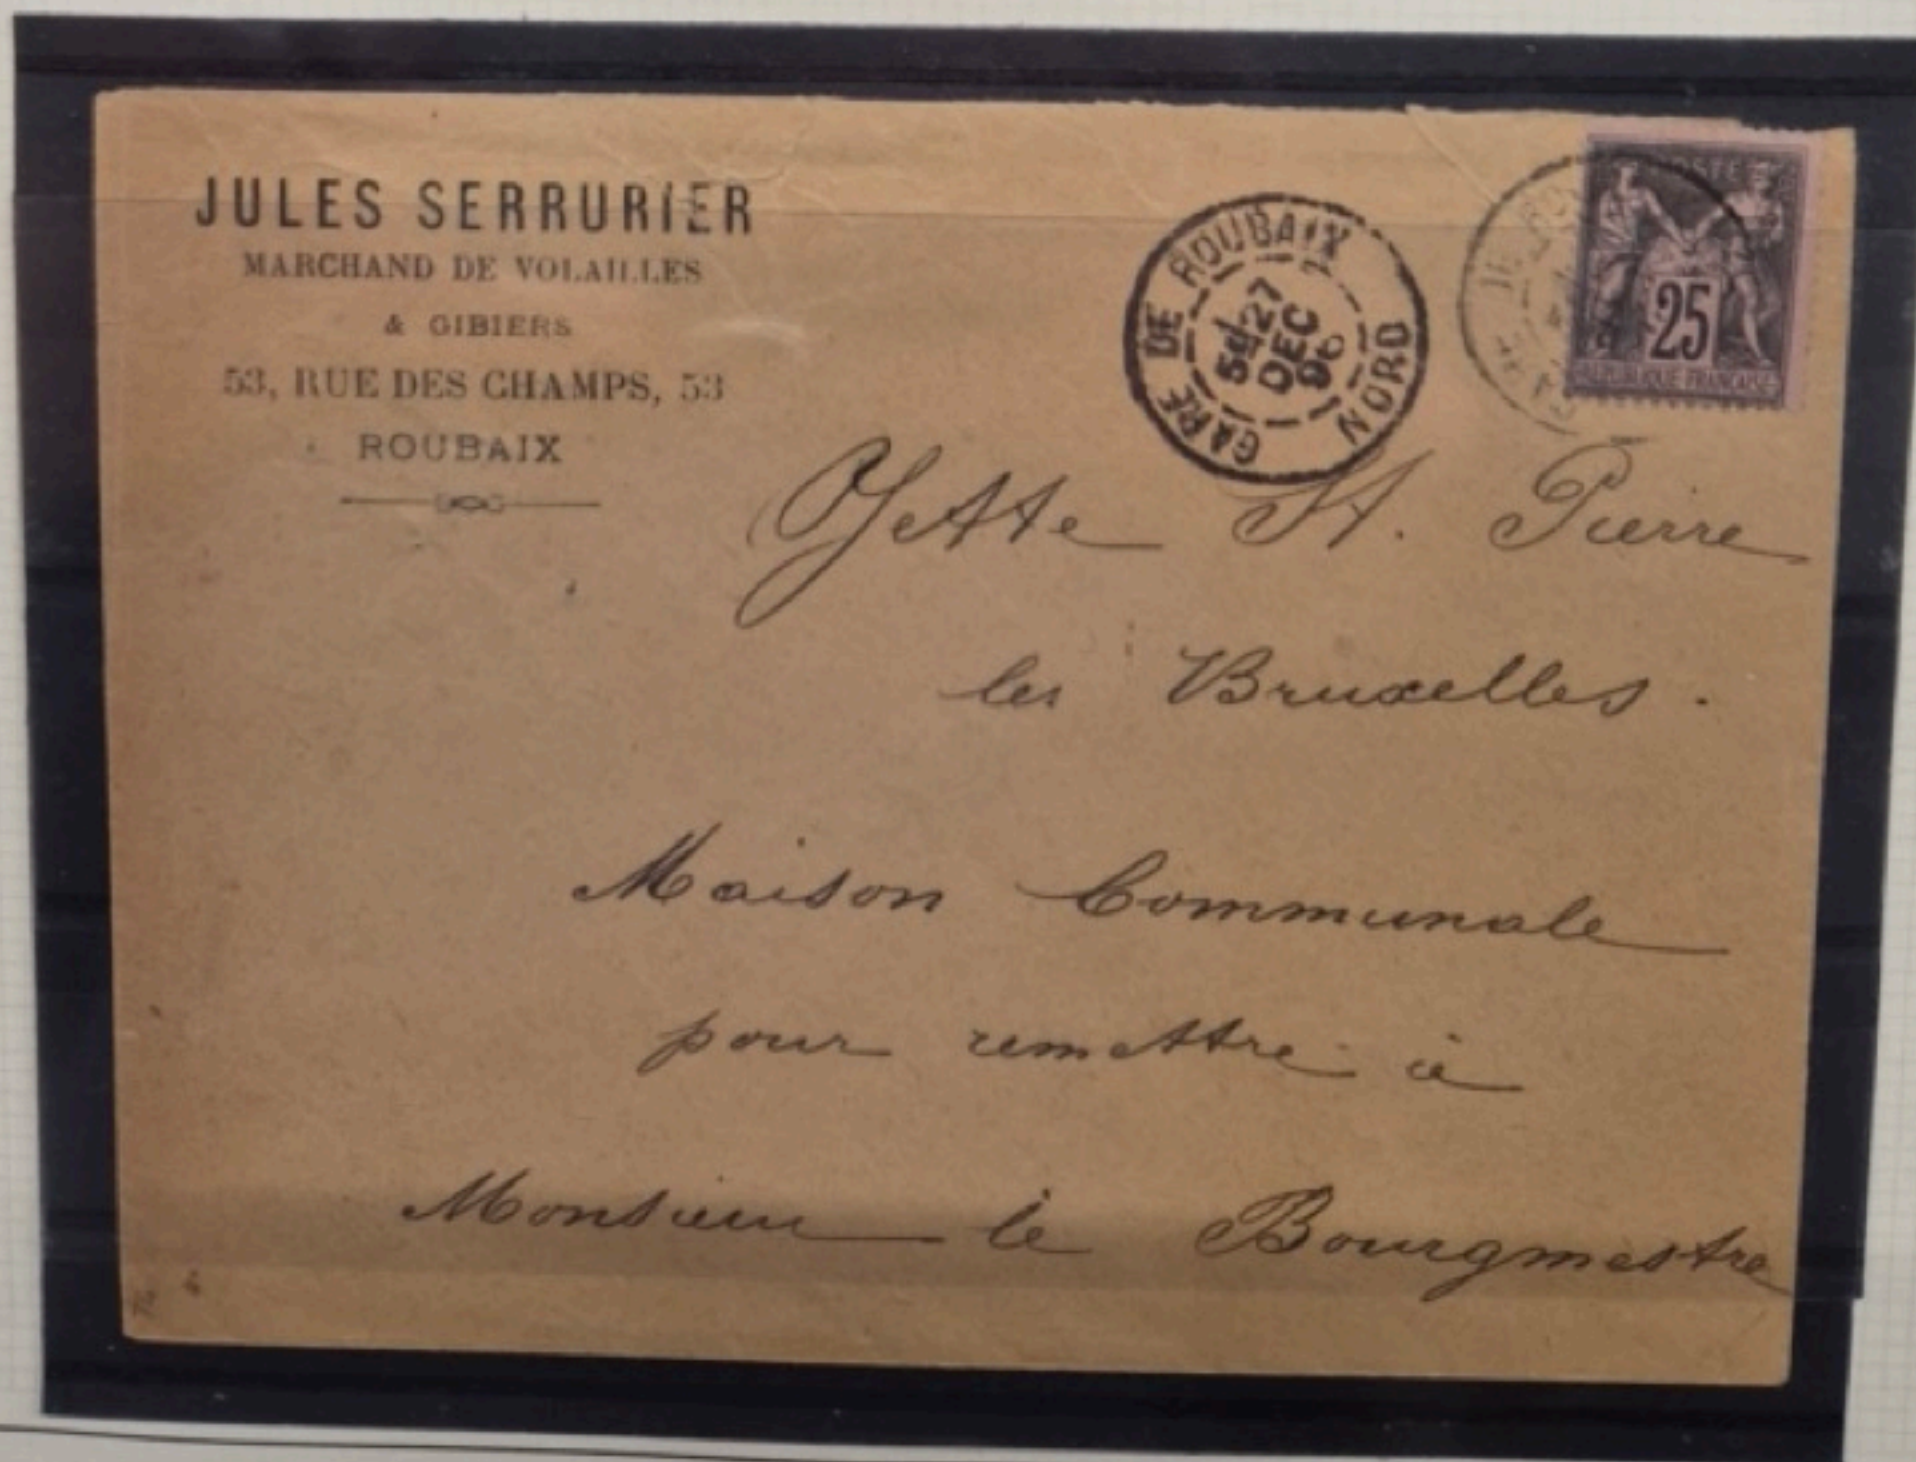 JULES SERRURIER
MARCHAND DE VOLAILLES
& GIBIERS
53, RUE DES CHAMPS, 53
ROUBAIX
GARE DE ROUBAIX
27
DEC
96
NORD
POSTE
25
REPUBLIQUE FRANCAISE
Jette St. Pierre
les Bruxelles.
Maison Communale
pour remettre à
Monsieur le Bourgmestre